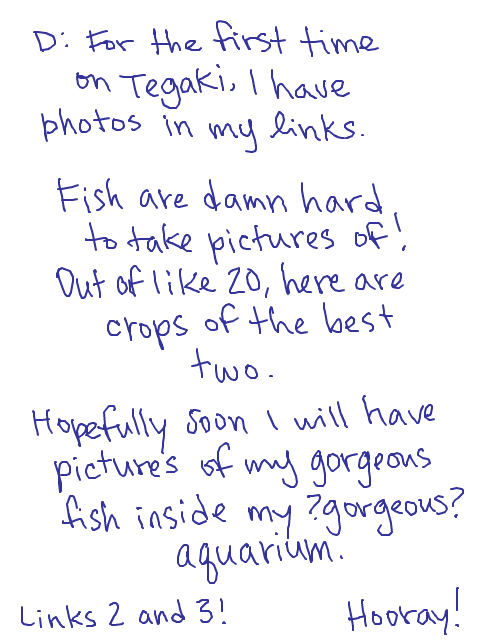 D: For the first time
on Tegaki, I have
photos in my links.
Fish are damn hard
to take pictures of!
Out of like 20, here are
crops of the best
two.
Hopefully soon I will have
pictures of my gorgeous
fish inside my ?gorgeous?
aquarium.
Links 2 and 3! Hooray!